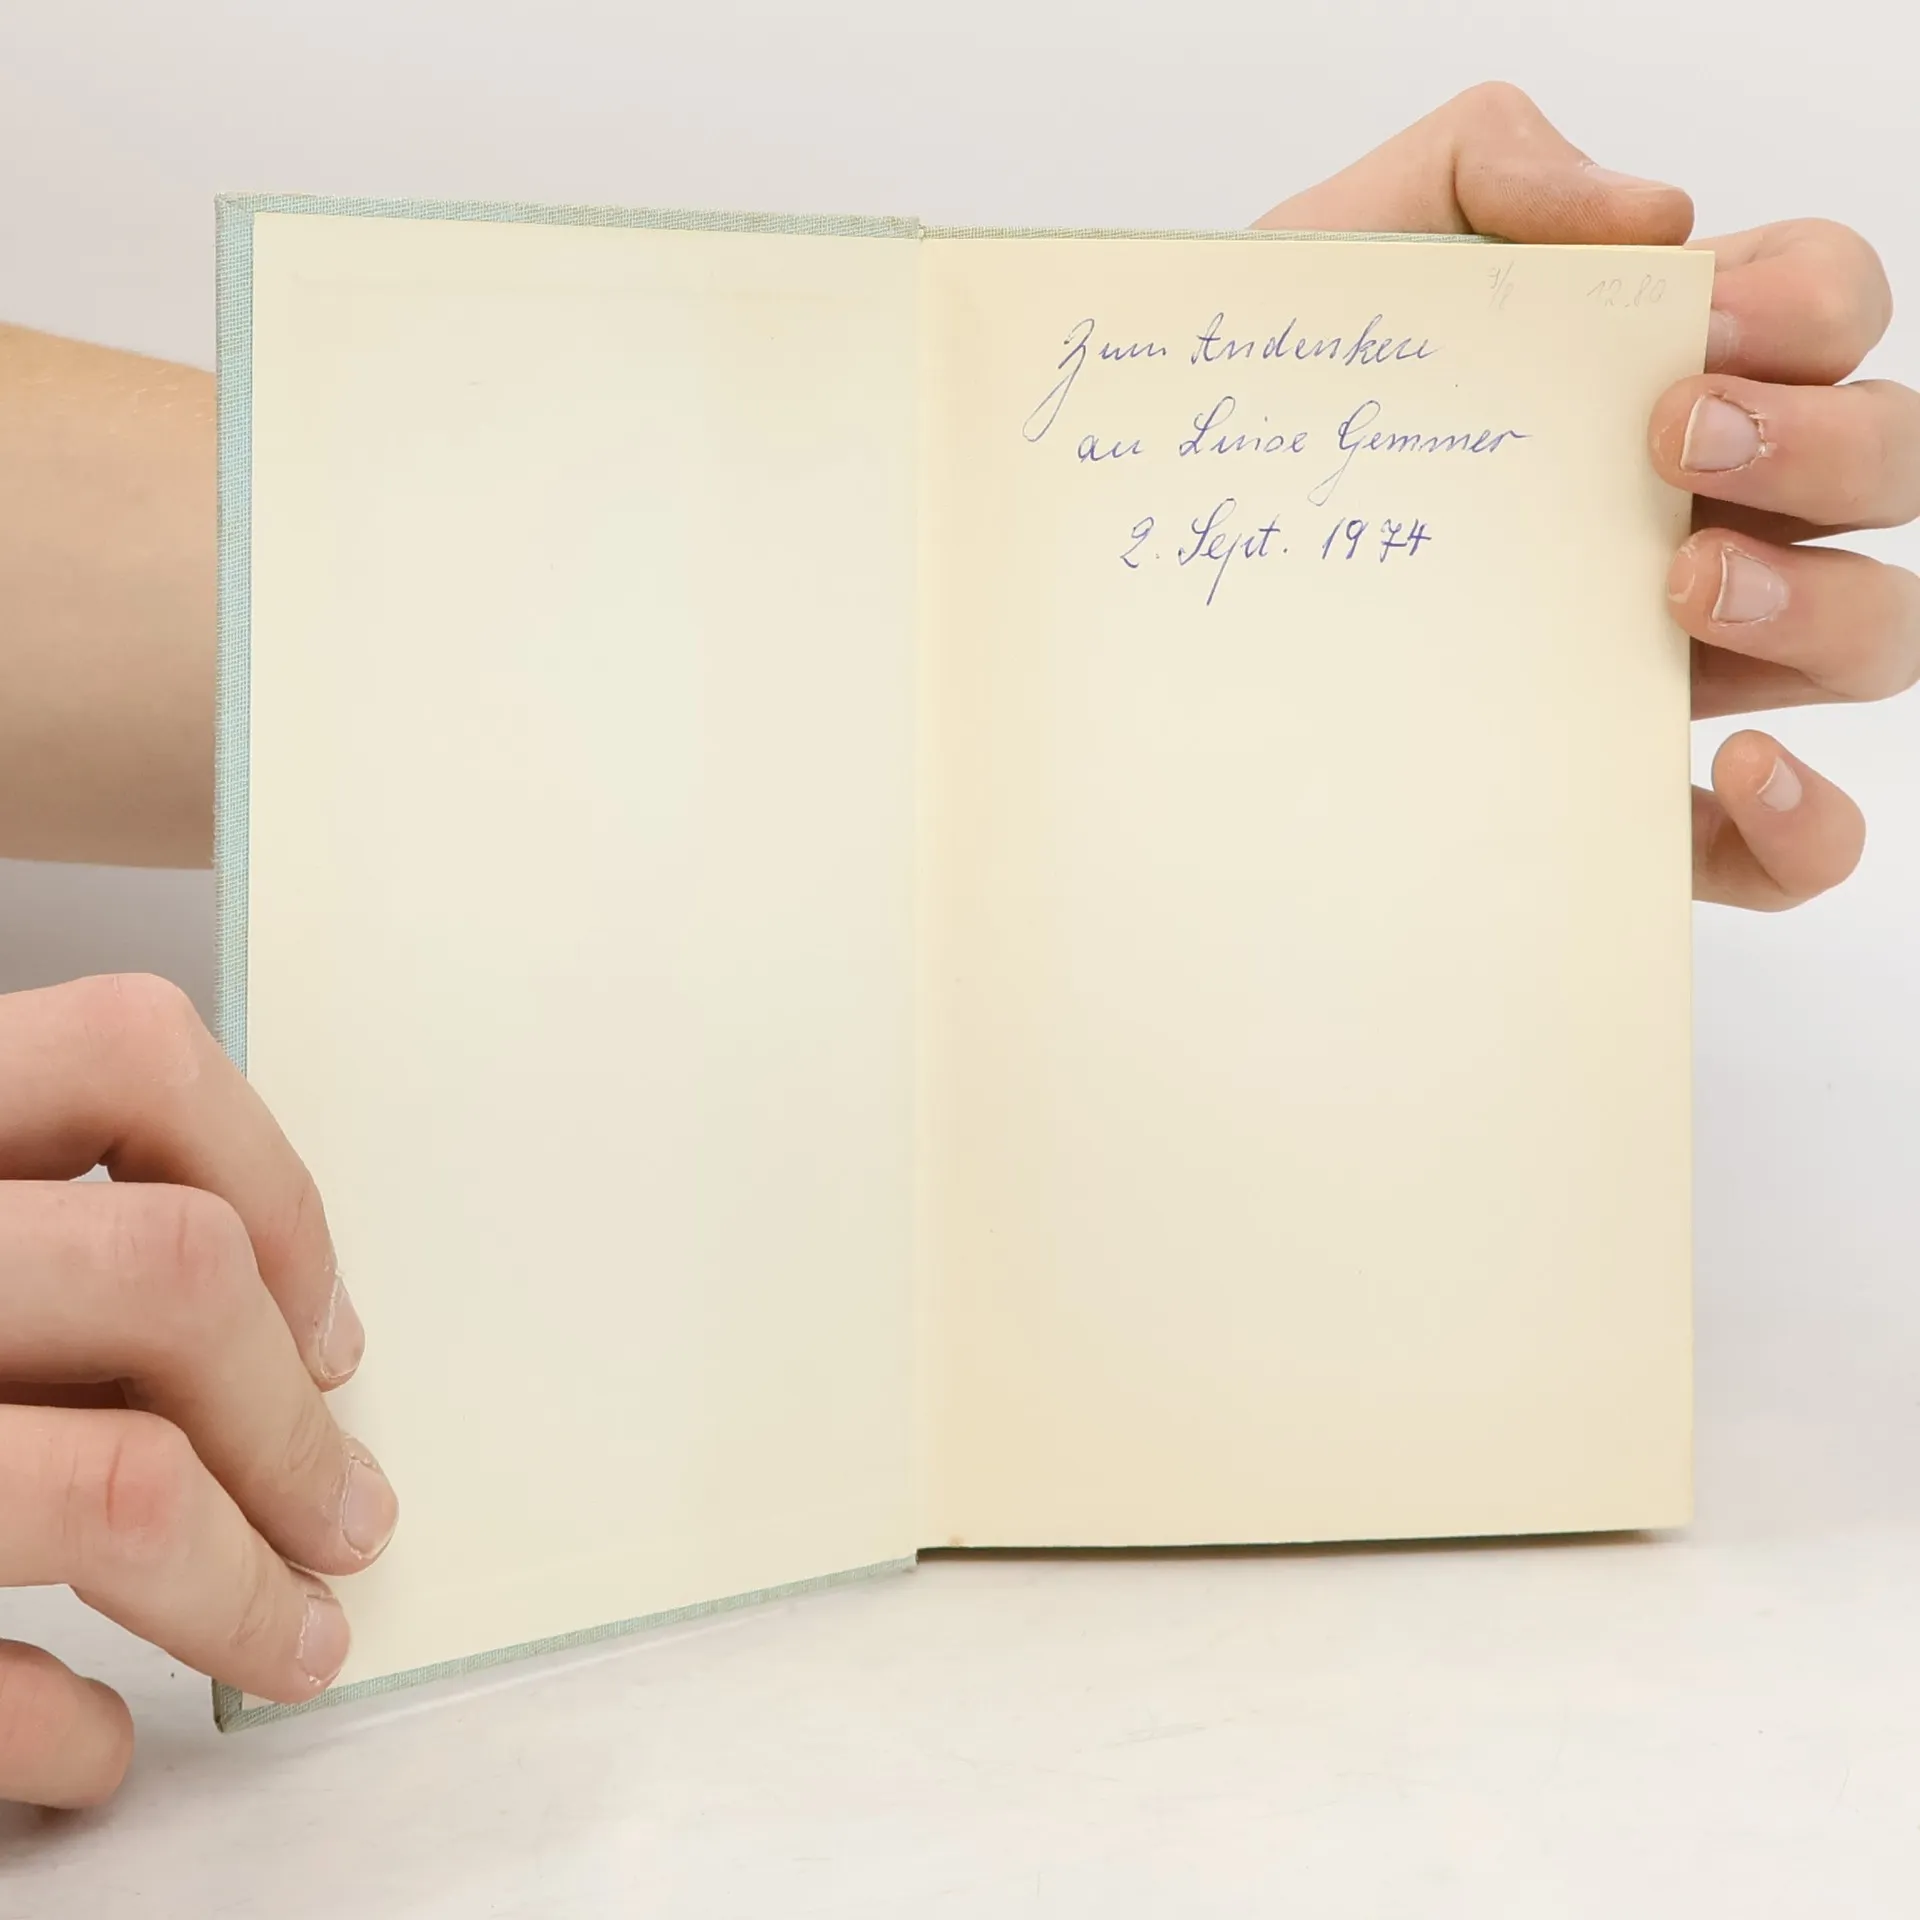 12.80
Zum Andenken
an Luise Gemmer
2. Sept. 1974